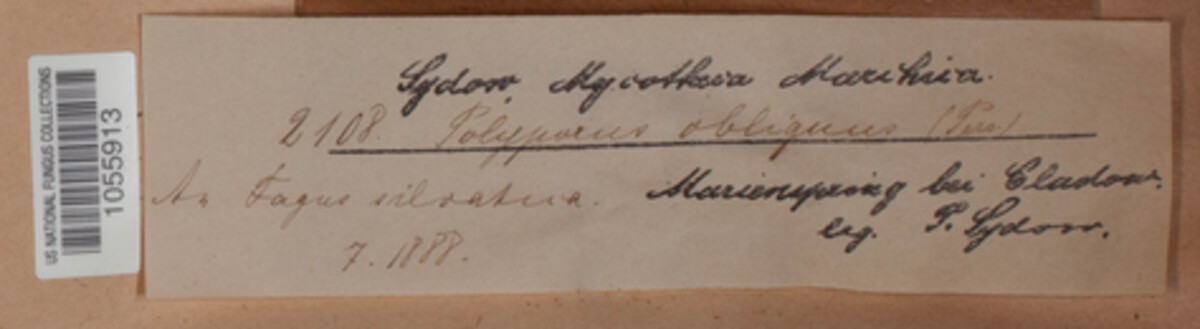 US NATIONAL FUNGUS COLLECTIONS
1055913
Sydow, Mycotheca Marchica.
2108. Polyporus obliquus (Pers.)
An Fagus silvatica.
Marienspring bei Cladow.
7. 1888.
leg. P. Sydow.